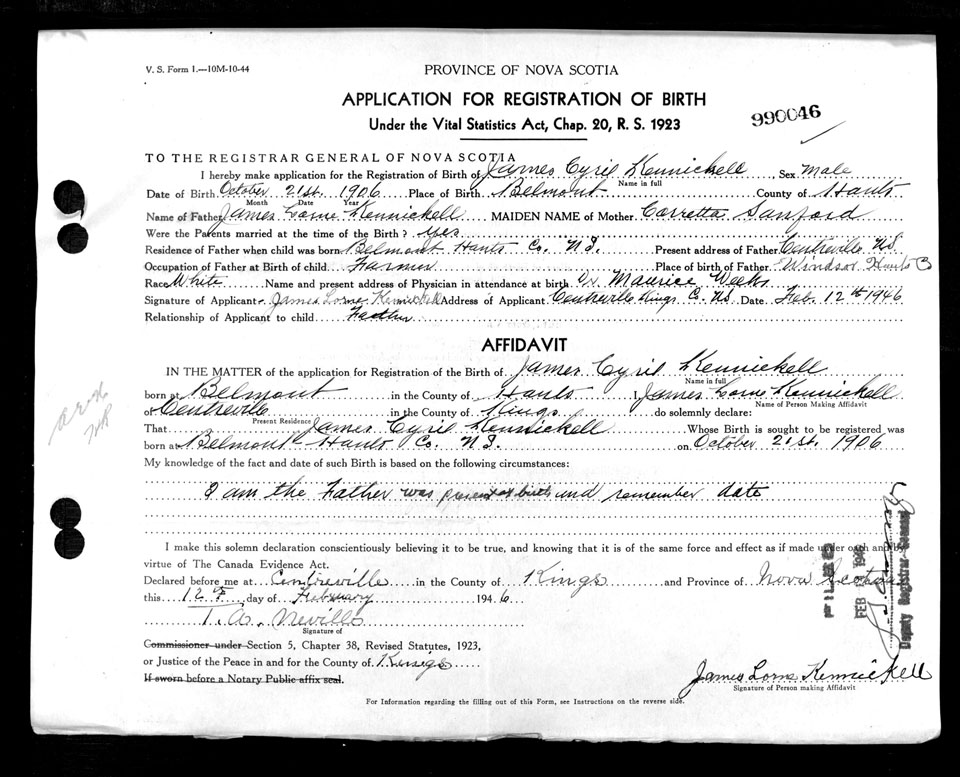 V. S. Form 1.—10M-10-44
PROVINCE OF NOVA SCOTIA
APPLICATION FOR REGISTRATION OF BIRTH
Under the Vital Statistics Act, Chap. 20, R. S. 1923
990046
TO THE REGISTRAR GENERAL OF NOVA SCOTIA
I hereby make application for the Registration of Birth of James Cyril Kennickell Sex Male
Name in full
Date of Birth October 21st. 1906 Place of Birth Belmont County of Hants
Month Date Year
Name of Father James Lorne Kennickell MAIDEN NAME of Mother Carretta Sanford
Were the Parents married at the time of the Birth? yes
Residence of Father when child was born Belmont Hants Co. N.S. Present address of Father Centreville N.S.
Occupation of Father at Birth of child Farmer Place of birth of Father Windsor Hants
Race White Name and present address of Physician in attendance at birth Dr. Maurice Weeks
Signature of Applicant James Lorne Kennickell Address of Applicant Centreville Kings C. NS Date Feb. 12th 1946
Relationship of Applicant to child Father
AFFIDAVIT
IN THE MATTER of the application for Registration of the Birth of James Cyril Kennickell
Name in full
born at Belmont in the County of Hants I, James Lorne Kennickell
Name of Person Making Affidavit
of Centreville in the County of Kings do solemnly declare:
Present Residence
That James Cyril Kennickell Whose Birth is sought to be registered was
born at Belmont Hants Co. N.S. on October 21st. 1906
My knowledge of the fact and date of such Birth is based on the following circumstances:
I am the Father was present at birth and remember date
I make this solemn declaration conscientiously believing it to be true, and knowing that it is of the same force and effect as if made under oath and by
virtue of The Canada Evidence Act.
Declared before me at Centreville in the County of Kings and Province of Nova Scotia
this 12th day of February 1946
T. A. Neville
Signature of
Commissioner under Section 5, Chapter 38, Revised Statutes, 1923,
or Justice of the Peace in and for the County of Kings
If sworn before a Notary Public affix seal.
James Lorne Kennickell
Signature of Person making Affidavit
For Information regarding the filling out of this Form, see Instructions on the reverse side.
Deputy Registrar General